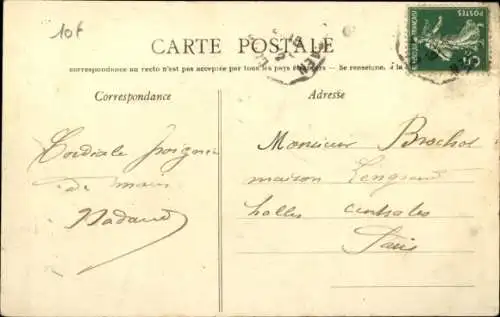 10f
CARTE POSTALE
correspondance au recto n'est pas acceptée par tous les pays étrangers — Se renseigner, à la
POSTES
CAEN
Correspondance
Adresse
Cordiale poignée
de main
Nadaud
Monsieur Brochot
maison
halles centrales
Paris